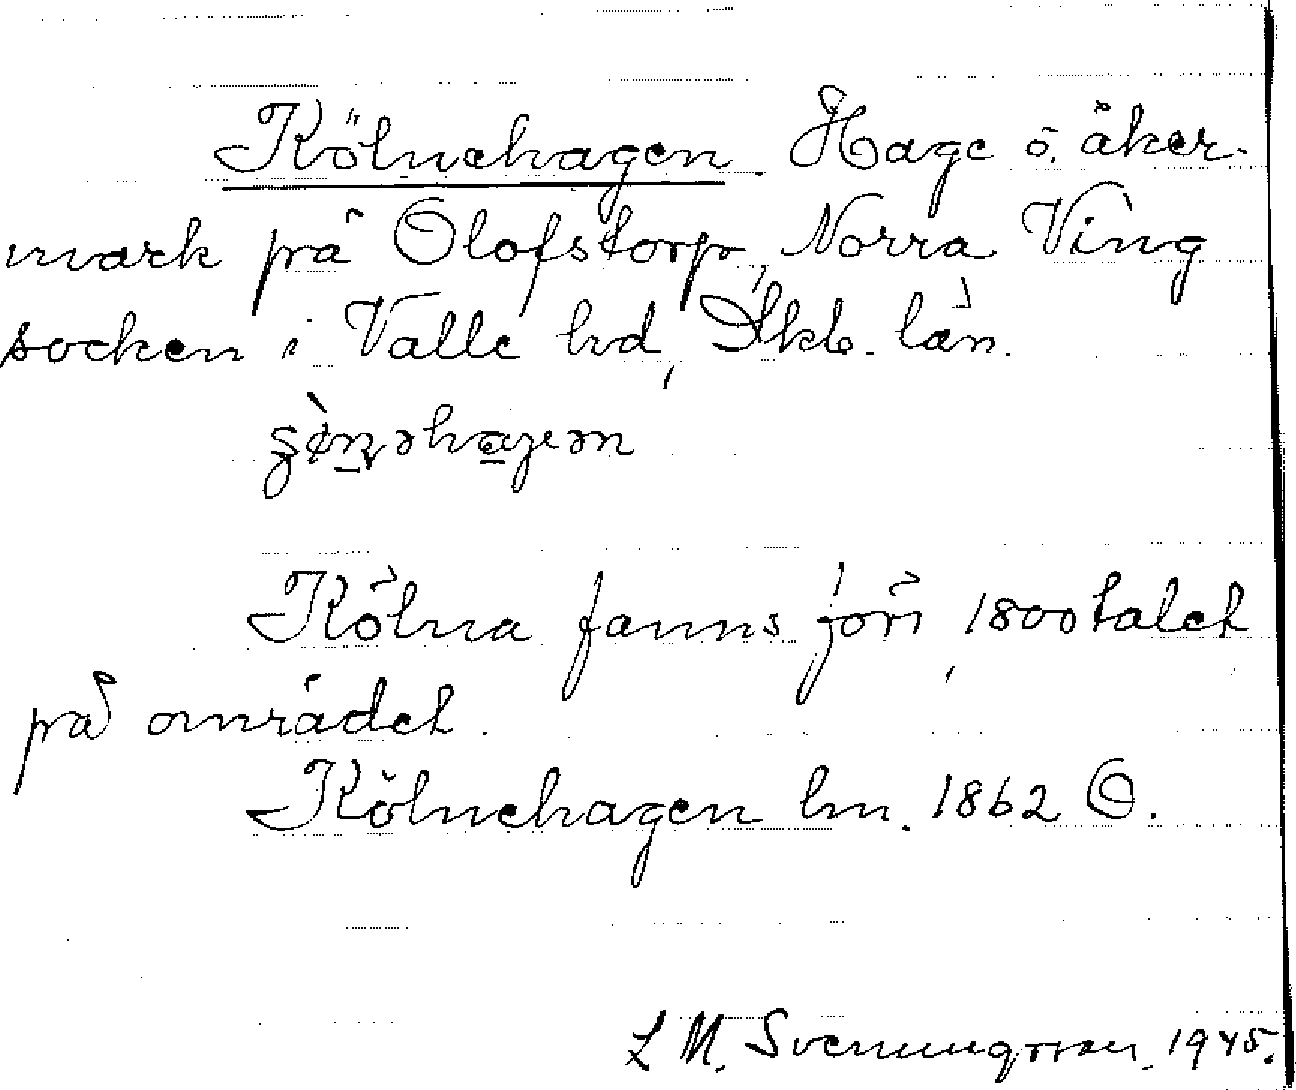 Kölnehagen. Hage o. åker-
mark på Olofstorp, Norra Ving
socken i Valle hd, Skb. län.
Kölna fanns förr, 1800talet
på området.
Kölnehagen hm. 1862 O.
L M. Svenungsson. 1945.